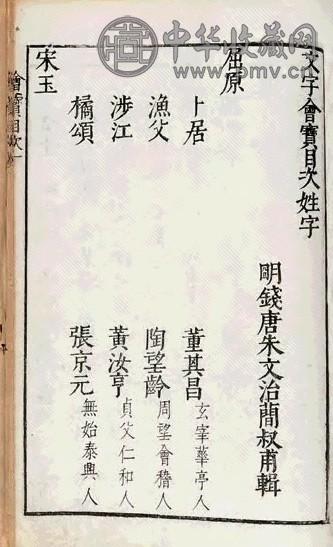 中华收藏网
www.pmv.cn
文字會寶目次姓字
明錢唐朱文治簡叔甫輯
屈原
卜居 董其昌 玄宰華亭人
漁父 陶望齡 周望會稽人
涉江 黃汝亨 貞父仁和人
橘頌 張京元 無始泰興人
宋玉
目次一